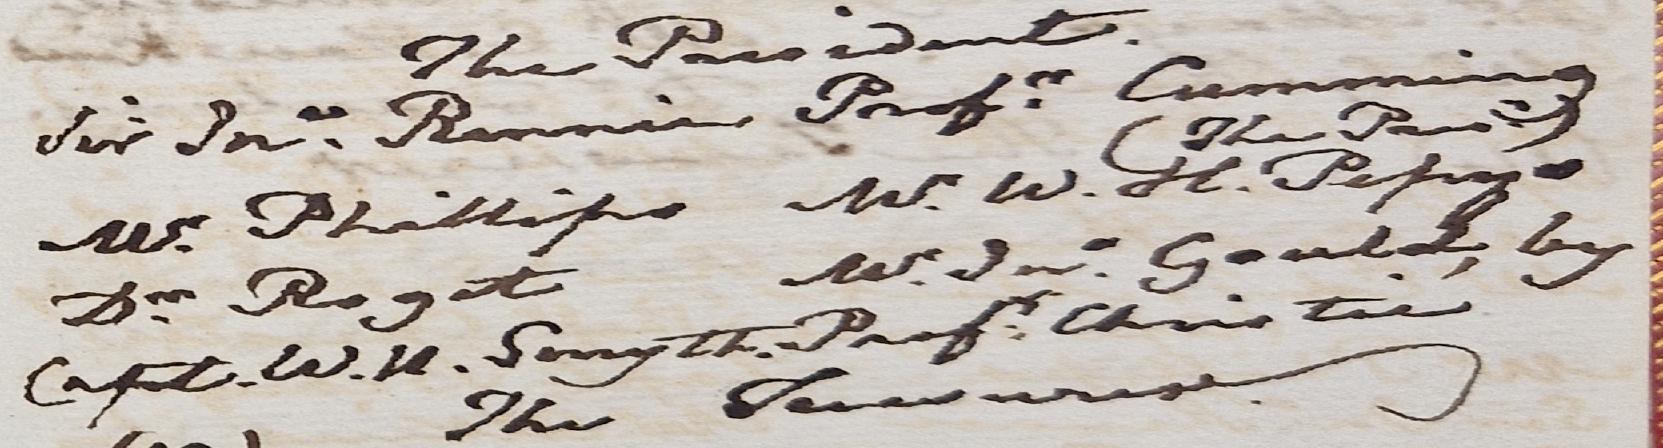 The President.
Sir Jno. Rennie Profr. Cumming
(The Presr.)
Mr. Phillips Mr. W. H. Pepys
Dr. Roget Mr. Jno. Gould, by
Capt. W. H. Smyth. Profr. Christie
The Treasurer.